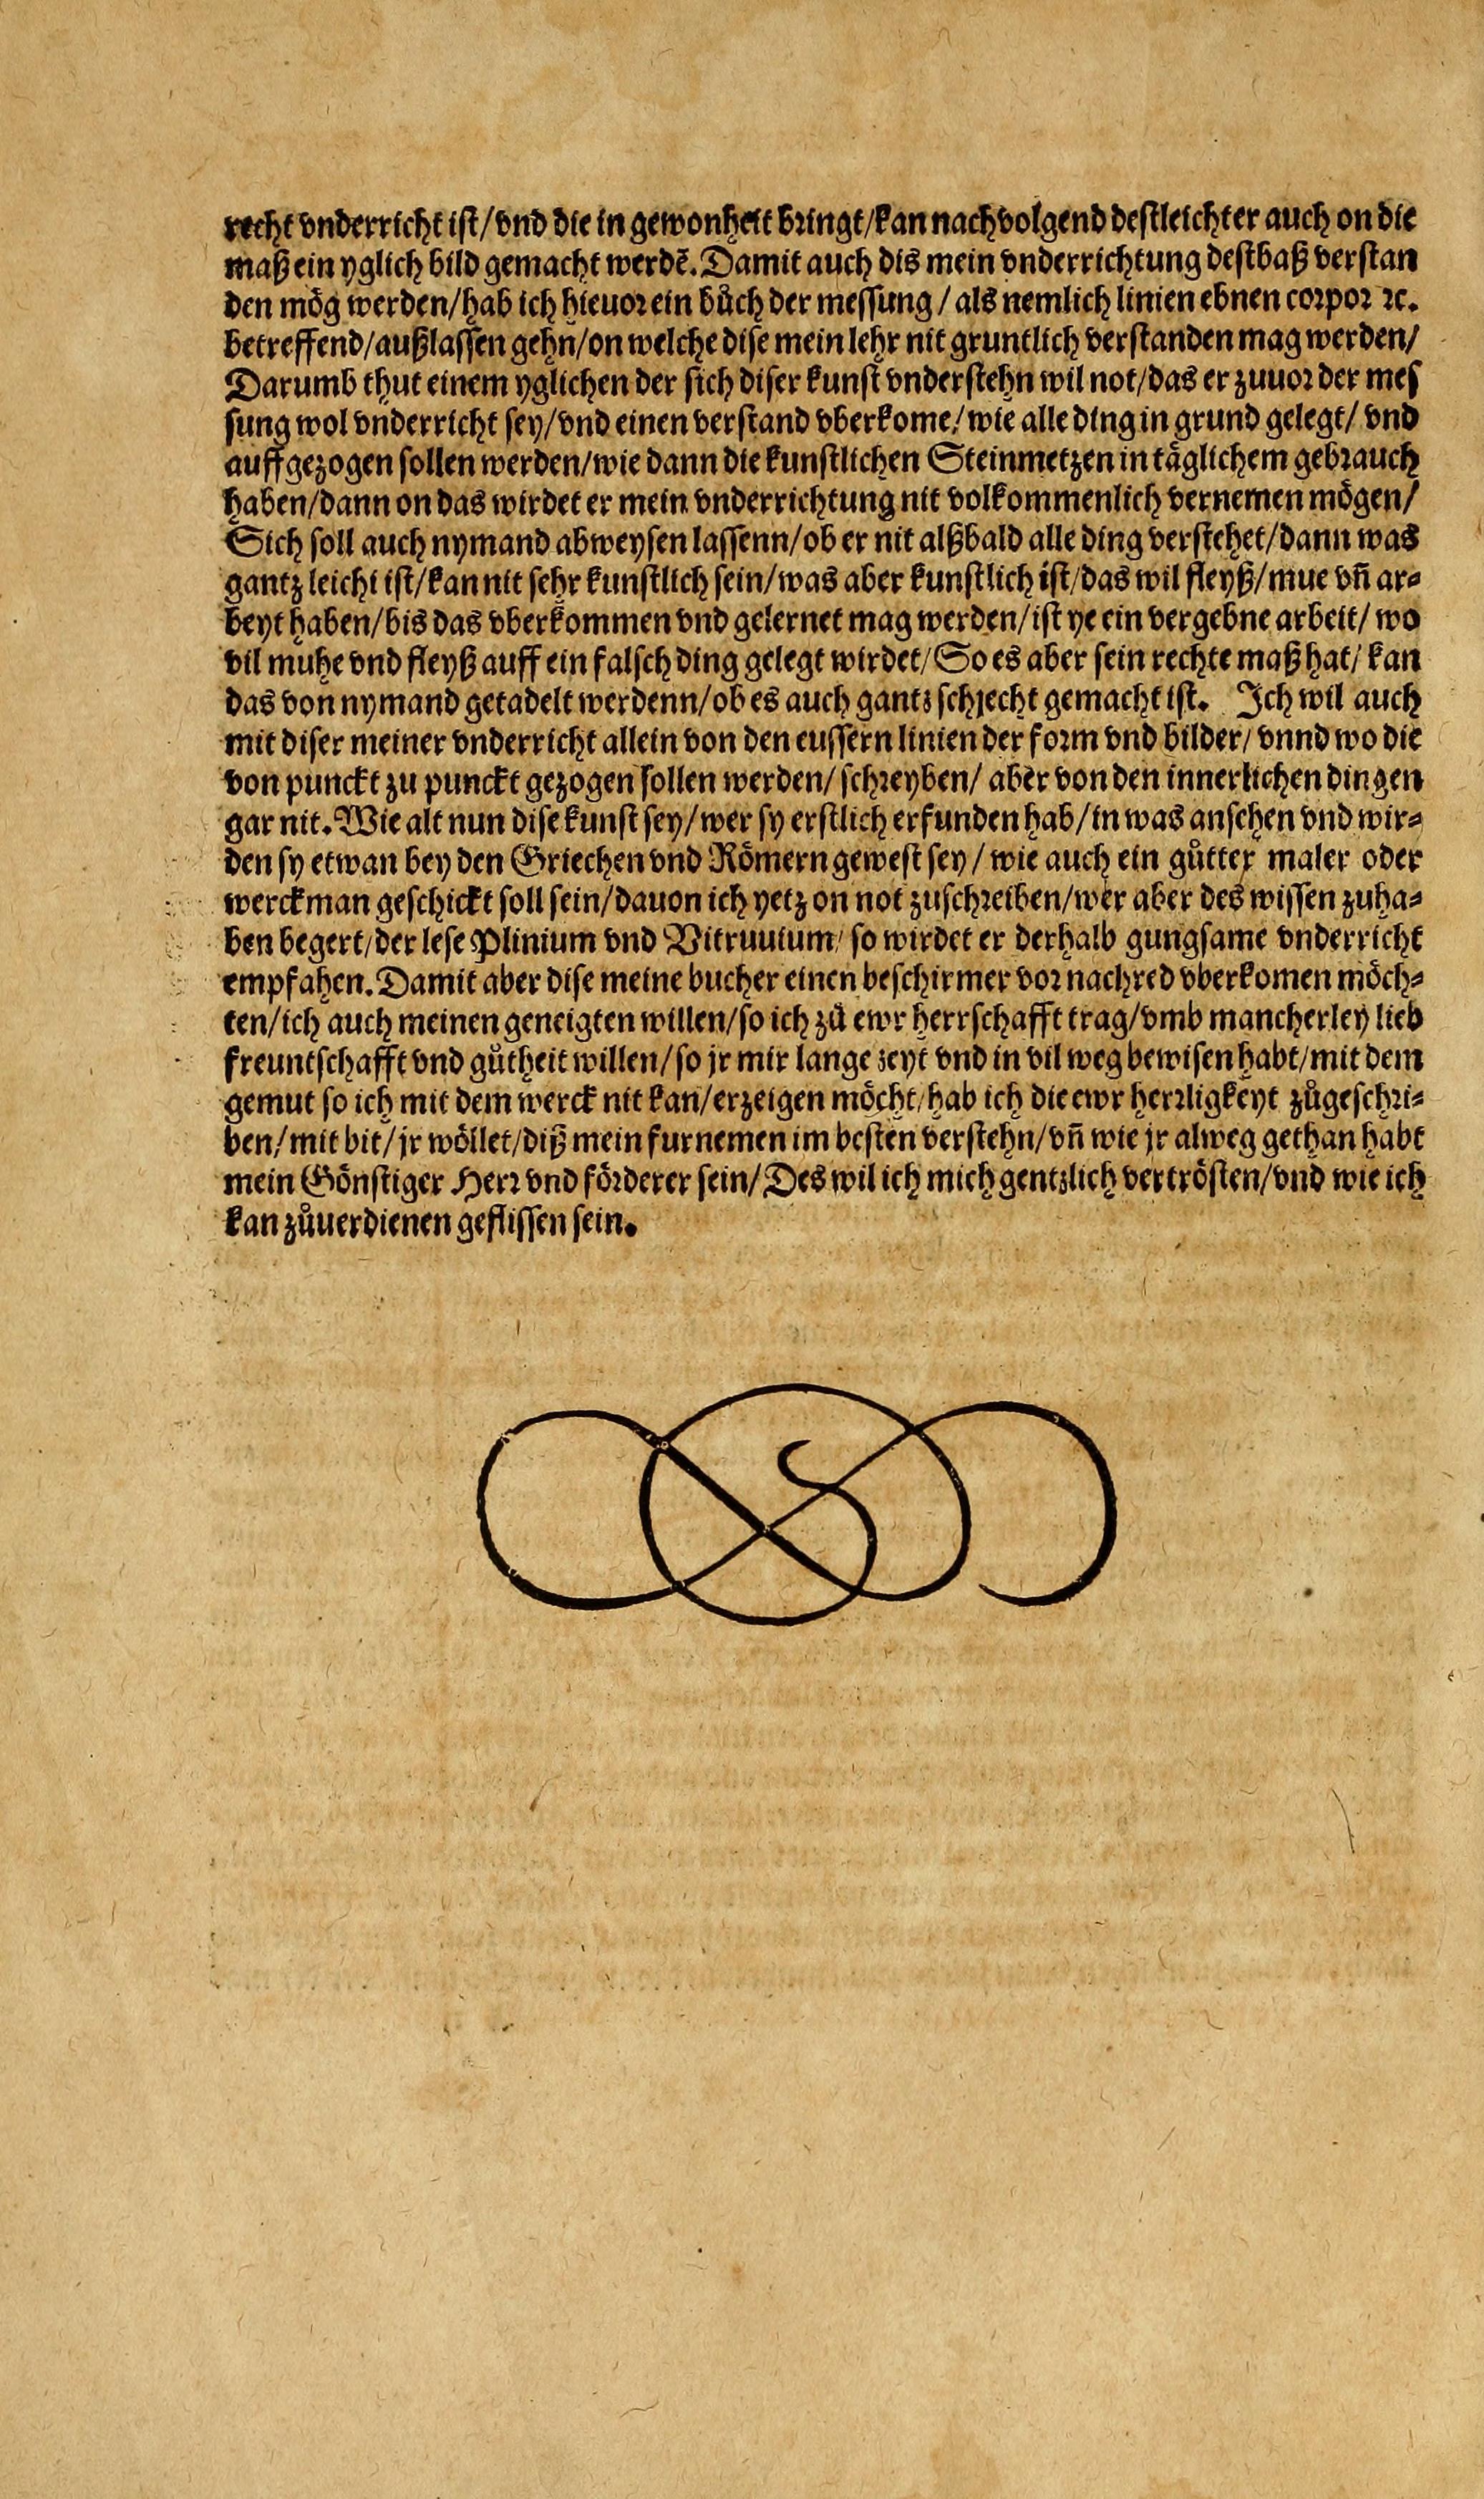 recht vnderricht ist/vnd die in gewonheit bringt/kan nachvolgend destleichter auch on die
maß ein yglich bild gemacht werdē. Damit auch dis mein vnderrichtung destbaß verstan
den mög werden/hab ich hieuor ein bůch der messung/als nemlich linien ebnen corpor ꝛc.
betreffend/außlassen gehn/on welche dise mein lehr nit gruntlich verstanden mag werden/
Darumb thut einem yglichen der sich diser kunst vnderstehn wil not/das er zuuor der mes
sung wol vnderricht sey/vnd einen verstand vberkome/wie alle ding in grund gelegt/vnd
auffgezogen sollen werden/wie dann die kunstlichen Steinmetzen in täglichem gebrauch
haben/dann on das wirdet er mein vnderrichtung nit volkommenlich vernemen mögen/
Sich soll auch nymand abweysen lassenn/ob er nit alßbald alle ding verstehet/dann was
gantz leicht ist/kan nit sehr kunstlich sein/was aber kunstlich ist/das wil fleyß/mue vn̄ ar⸗
beyt haben/bis das vberkommen vnd gelernet mag werden/ist ye ein vergebne arbeit/wo
vil muhe vnd fleyß auff ein falsch ding gelegt wirdet/So es aber sein rechte maß hat/kan
das von nymand getadelt werdenn/ob es auch gantz schlecht gemacht ist. Ich wil auch
mit diser meiner vnderricht allein von den eussern linien der form vnd bilder/vnnd wo die
von punckt zu punckt gezogen sollen werden/schreyben/aber von den innerlichen dingen
gar nit. Wie alt nun dise kunst sey/wer sy erstlich erfunden hab/in was ansehen vnd wir⸗
den sy etwan bey den Griechen vnd Römern gewest sey/wie auch ein gůtter maler oder
werckman geschickt soll sein/dauon ich yetz on not zuschreiben/wer aber des wissen zuha⸗
ben begert/der lese Plinium vnd Vitruuium/so wirdet er derhalb gungsame vnderricht
empfahen. Damit aber dise meine bucher einen beschirmer vor nachred vberkomen möch⸗
ten/ich auch meinen geneigten willen/so ich zů ewr herrschafft trag/vmb mancherley lieb
freuntschafft vnd gůtheit willen/so jr mir lange zeyt vnd in vil weg bewisen habt/mit dem
gemut so ich mit dem werck nit kan/erzeigen möcht/hab ich die ewr herrligkeyt zůgeschri⸗
ben/mit bit/jr wöllet/diß mein furnemen im besten verstehn/vn̄ wie jr alweg gethan habt
mein Gönstiger Herr vnd förderer sein/Des wil ich mich gentzlich vertrösten/vnd wie ich
kan zůuerdienen geflissen sein.